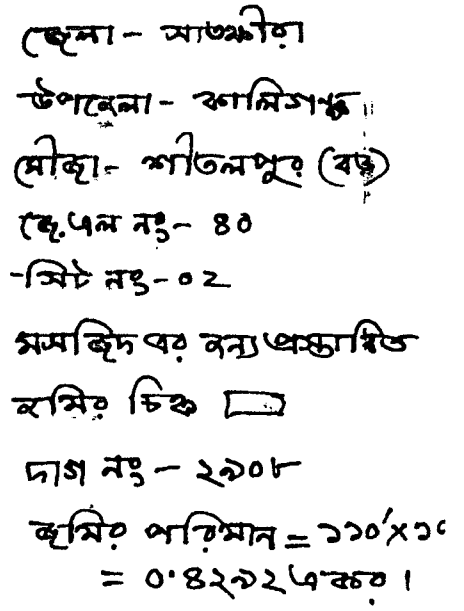 জেলা - সাতক্ষীরা
উপজেলা - কালিগঞ্জ
মৌজা - শীতলপুর (বড়)
জে.এল নং - ৪০
সিট নং - ০২
মসজিদ এর জন্য প্রস্তাবিত
জমির চিহ্ন
দাগ নং - ২৯০৮
জমির পরিমান = ১১০' X ১৭
= ০.৪২৯২ একর।